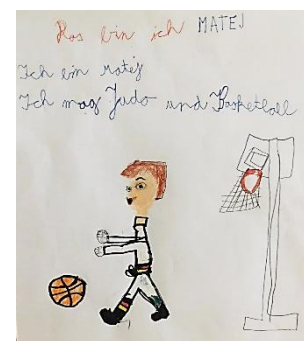 Das bin ich MATEJ
Ich bin Matej
Ich mag Judo und Basketball